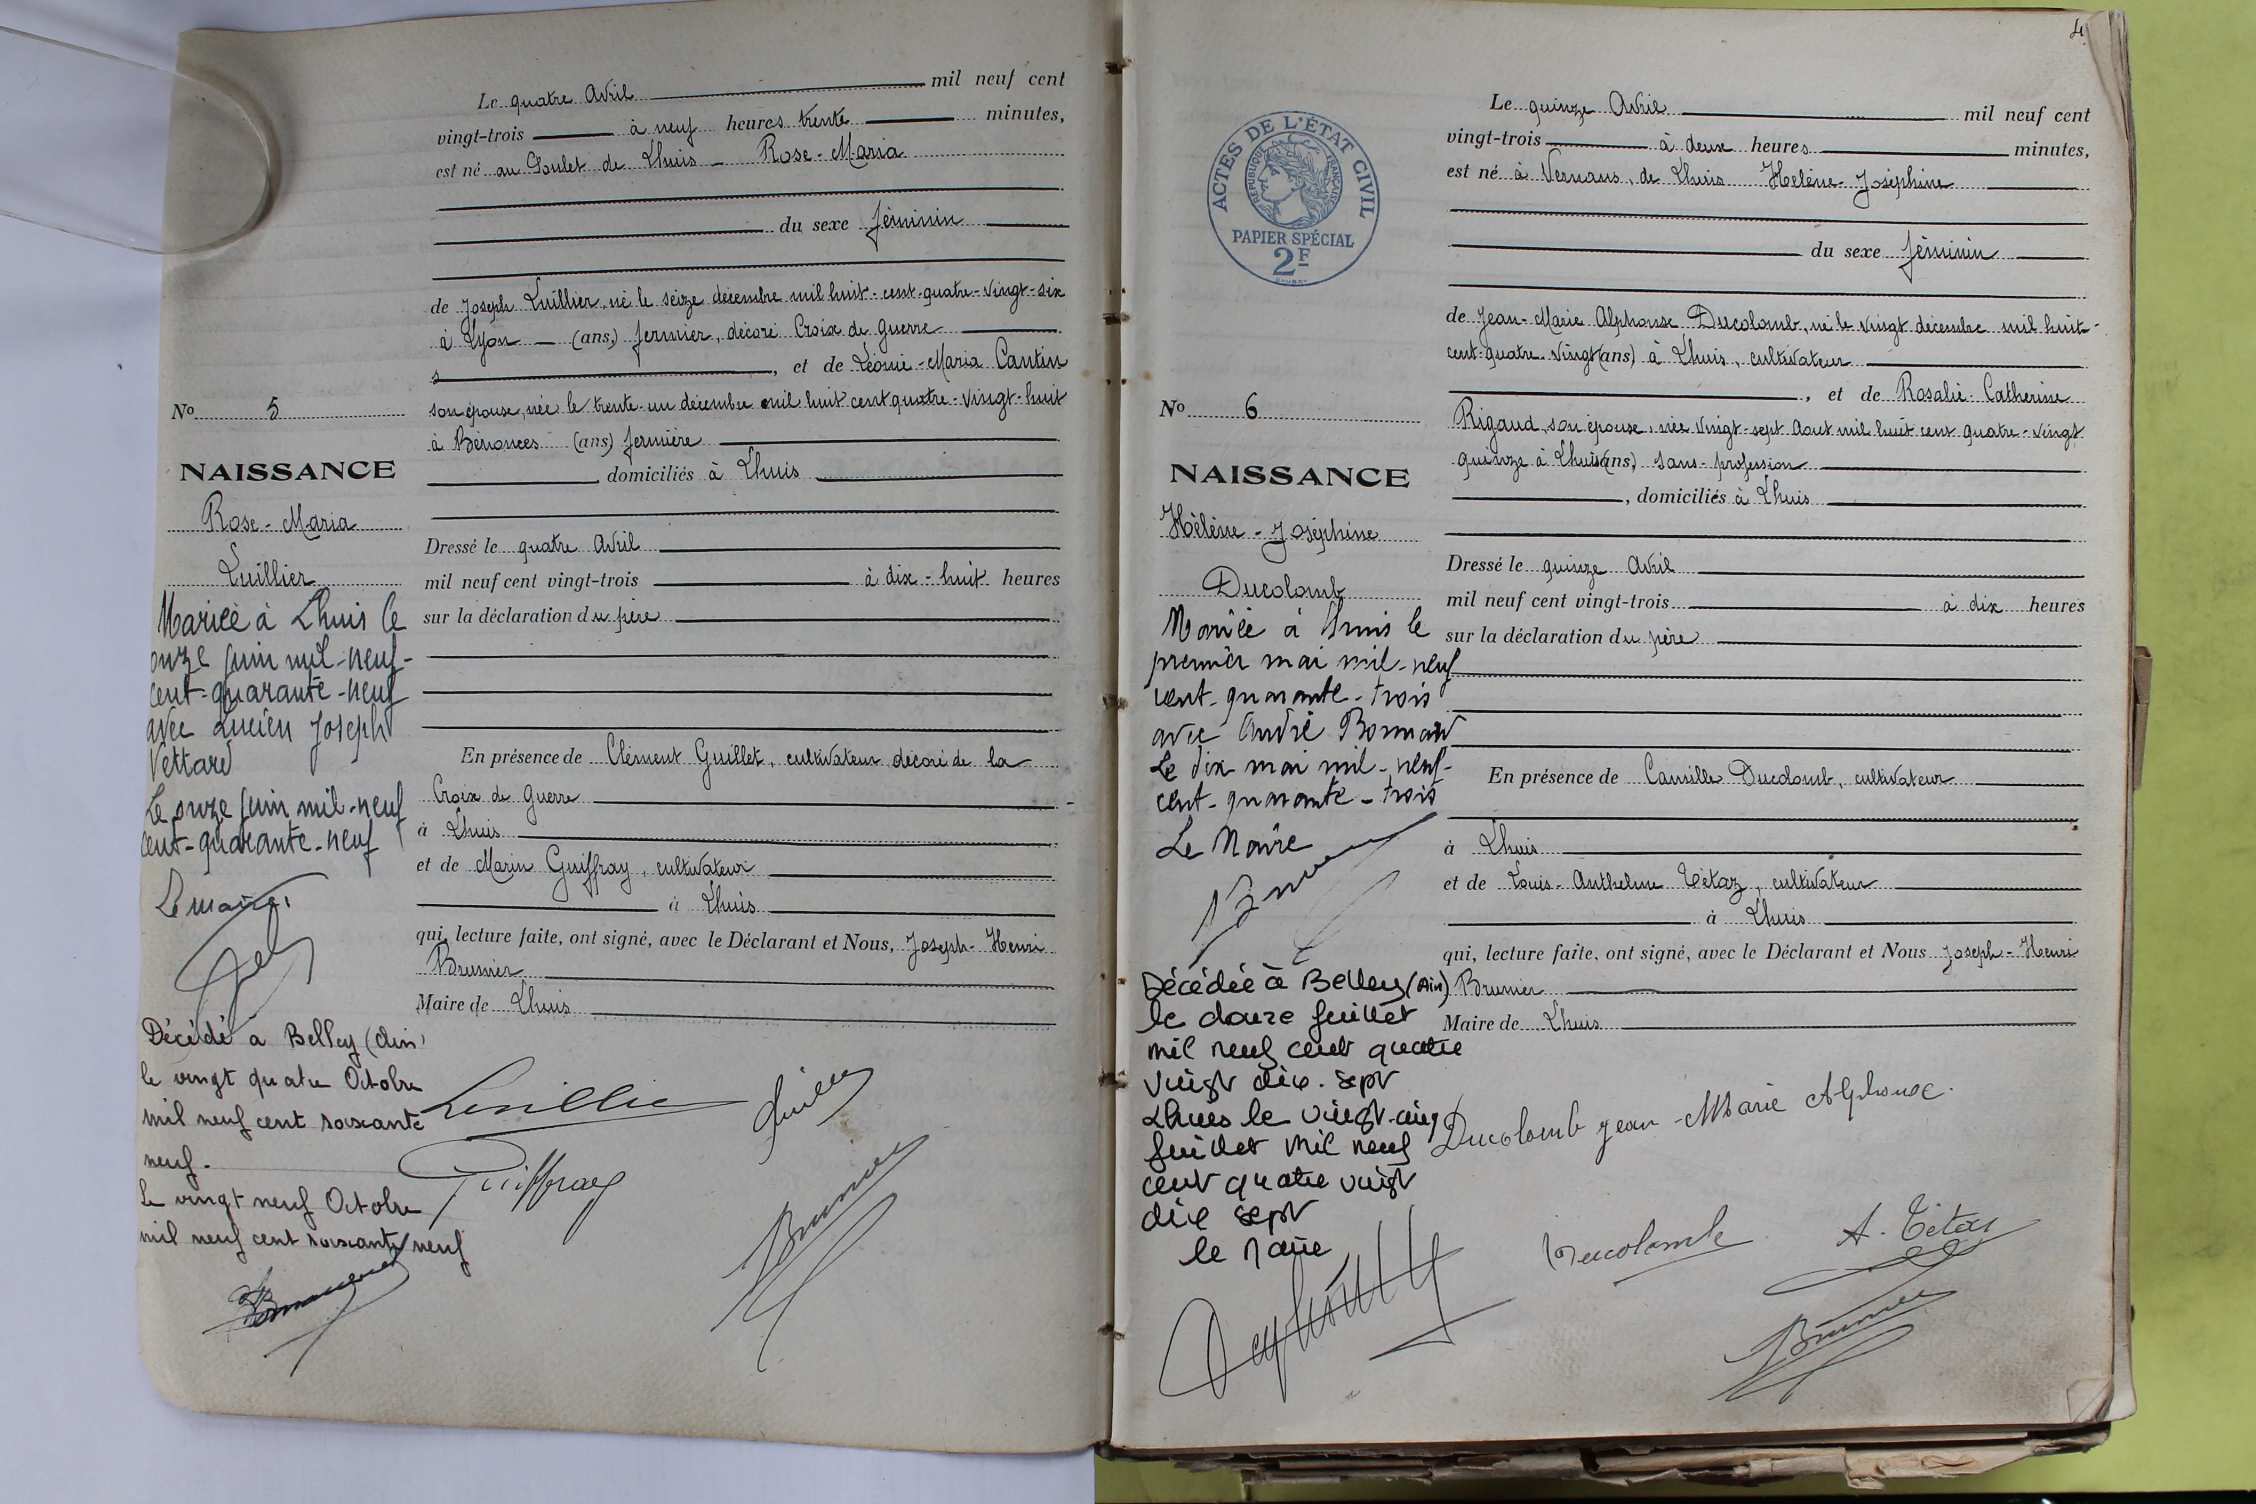 Le quatre Avril mil neuf cent
vingt-trois à neuf heures trente minutes,
est né au Poulet de Lhuis - Rose-Maria
du sexe féminin
de Joseph Luillier, né le seize décembre mil huit-cent-quatre-vingt-six
à Lyon - (ans) fermier, décoré Croix de guerre
, et de Léonie-Maria Cantin
son épouse, née le trente-un décembre mil huit cent quatre-vingt-huit
à Bénonces (ans) fermière
domiciliés à Lhuis
Dressé le quatre Avril
mil neuf cent vingt-trois à dix-huit heures
sur la déclaration du père
En présence de Clément Guillet, cultivateur décoré de la
Croix de Guerre
à Lhuis
et de Marin Guiffray, cultivateur
à Lhuis
qui, lecture faite, ont signé, avec le Déclarant et Nous, Joseph-Henri
Brunier
Maire de Lhuis
Luillier
Guillet
Guiffray
Brunier
No 5
NAISSANCE
Rose-Maria
Luillier
Mariée à Lhuis le
onze juin mil-neuf-
cent-quarante-neuf
avec Lucien Joseph
Vettard
Le onze juin mil-neuf
cent-quarante-neuf
Le maire
Décédé à Belley (Ain)
le vingt quatre Octobre
mil neuf cent soixante
neuf.
Le vingt neuf Octobre
mil neuf cent soixante neuf
4
ACTES DE L'ÉTAT CIVIL
RÉPUBLIQUE FRANÇAISE
PAPIER SPÉCIAL
2F
Le quinze Avril mil neuf cent
vingt-trois à deux heures minutes,
est né à Vernans, de Lhuis Hélène-Joséphine
du sexe féminin
de Jean-Marie Alphonse Ducolomb, né le vingt décembre mil huit-
cent-quatre-vingt (ans) à Lhuis, cultivateur
, et de Rosalie-Catherine
Rigaud, son épouse, née vingt-sept Aout mil huit cent quatre-vingt
quinze à Lhuis (ans) sans-profession
, domiciliés à Lhuis
Dressé le quinze Avril
mil neuf cent vingt-trois à dix heures
sur la déclaration du père
En présence de Camille Ducolomb, cultivateur
à Lhuis
et de Louis-Anthelme Tétaz, cultivateur
à Lhuis
qui, lecture faite, ont signé, avec le Déclarant et Nous Joseph-Henri
Brunier
Maire de Lhuis
Ducolomb jean-Marie Alphonse.
Ducolomb
A. Tétaz
Brunier
No 6
NAISSANCE
Hélène-Joséphine
Ducolomb
Mariée à Lhuis le
premier mai mil-neuf
cent-quarante-trois
avec André Bonnard
Le dix mai mil-neuf-
cent-quarante-trois
Le Maire
Décédée à Belley (Ain)
le douze juillet
mil neuf cent quatre
vingt dix-sept
Lhuis le vingt-cinq
juillet mil neuf
cent quatre vingt
dix sept
le Maire